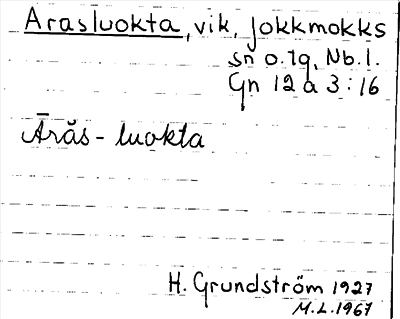 Arasluokta, vik, Jokkmokks
sn o. tg, Nb. l.
Gn 12 a 3 : 16
Ārăs - luokta
H. Grundström 1927
M.L. 1967